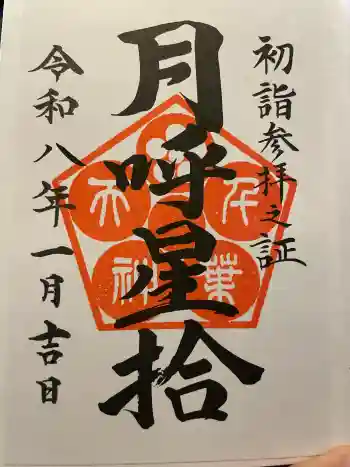 初詣参拝之証
月呼星拾
令和八年一月吉日
千
葉
神